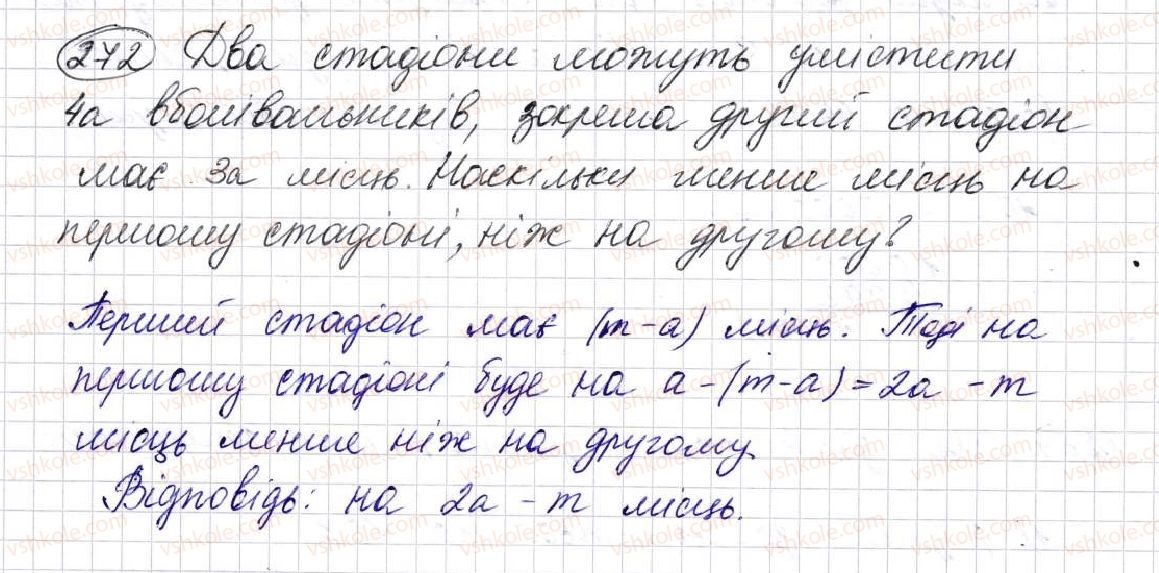 272 Два стадіони можуть умістити
4а вболівальників, зокрема другий стадіон
має 3а місць. Наскільки менше місць на
першому стадіоні, ніж на другому?
Перший стадіон має (m-a) місць. Тоді на
першому стадіоні буде на a-(m-a)=2a-m
місць менше ніж на другому.
Відповідь: на 2a-m місць.